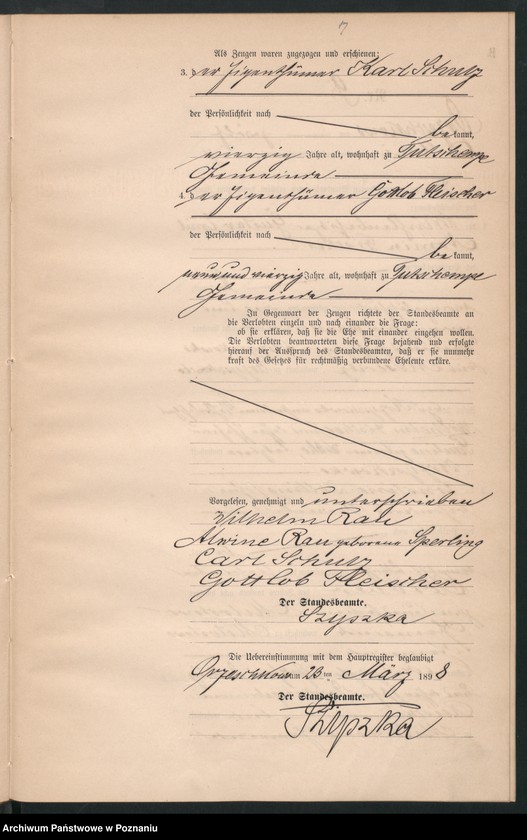 7
Als Zeugen waren zugezogen und erschienen:
3. der Eigenthümer Karl Schulz
der Persönlichkeit nach
bekannt,
vierzig Jahre alt, wohnhaft zu Gutschempe
Gemeinde
4. der Eigenthümer Gottlob Fleischer
der Persönlichkeit nach
bekannt,
neunundvierzig Jahre alt, wohnhaft zu Gutschempe
Gemeinde
In Gegenwart der Zeugen richtete der Standesbeamte an
die Verlobten einzeln und nach einander die Frage:
ob sie erklären, daß sie die Ehe mit einander eingehen wollen.
Die Verlobten beantworteten diese Frage bejahend und erfolgte
hierauf der Ausspruch des Standesbeamten, daß er sie nunmehr
kraft des Gesetzes für rechtmäßig verbundene Eheleute erkäre.
Vorgelesen, genehmigt und unterschrieben
Wilhelm Rau
Alwine Rau geborene Sperling
Carl Schulz
Gottlob Fleischer
Der Standesbeamte.
Szyszka
Die Uebereinstimmung mit dem Hauptregister beglaubigt
am 23 ten März 1898
Der Standesbeamte.
Szyszka
Archiwum Państwowe w Poznaniu